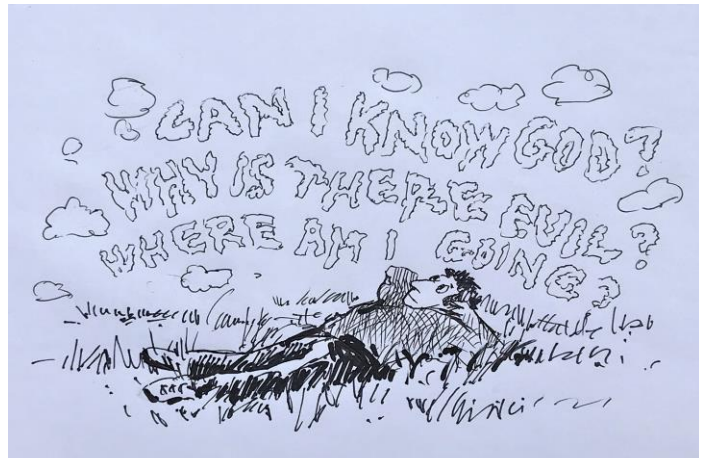 CAN I KNOW GOD?
WHY IS THERE EVIL?
WHERE AM I GOING?